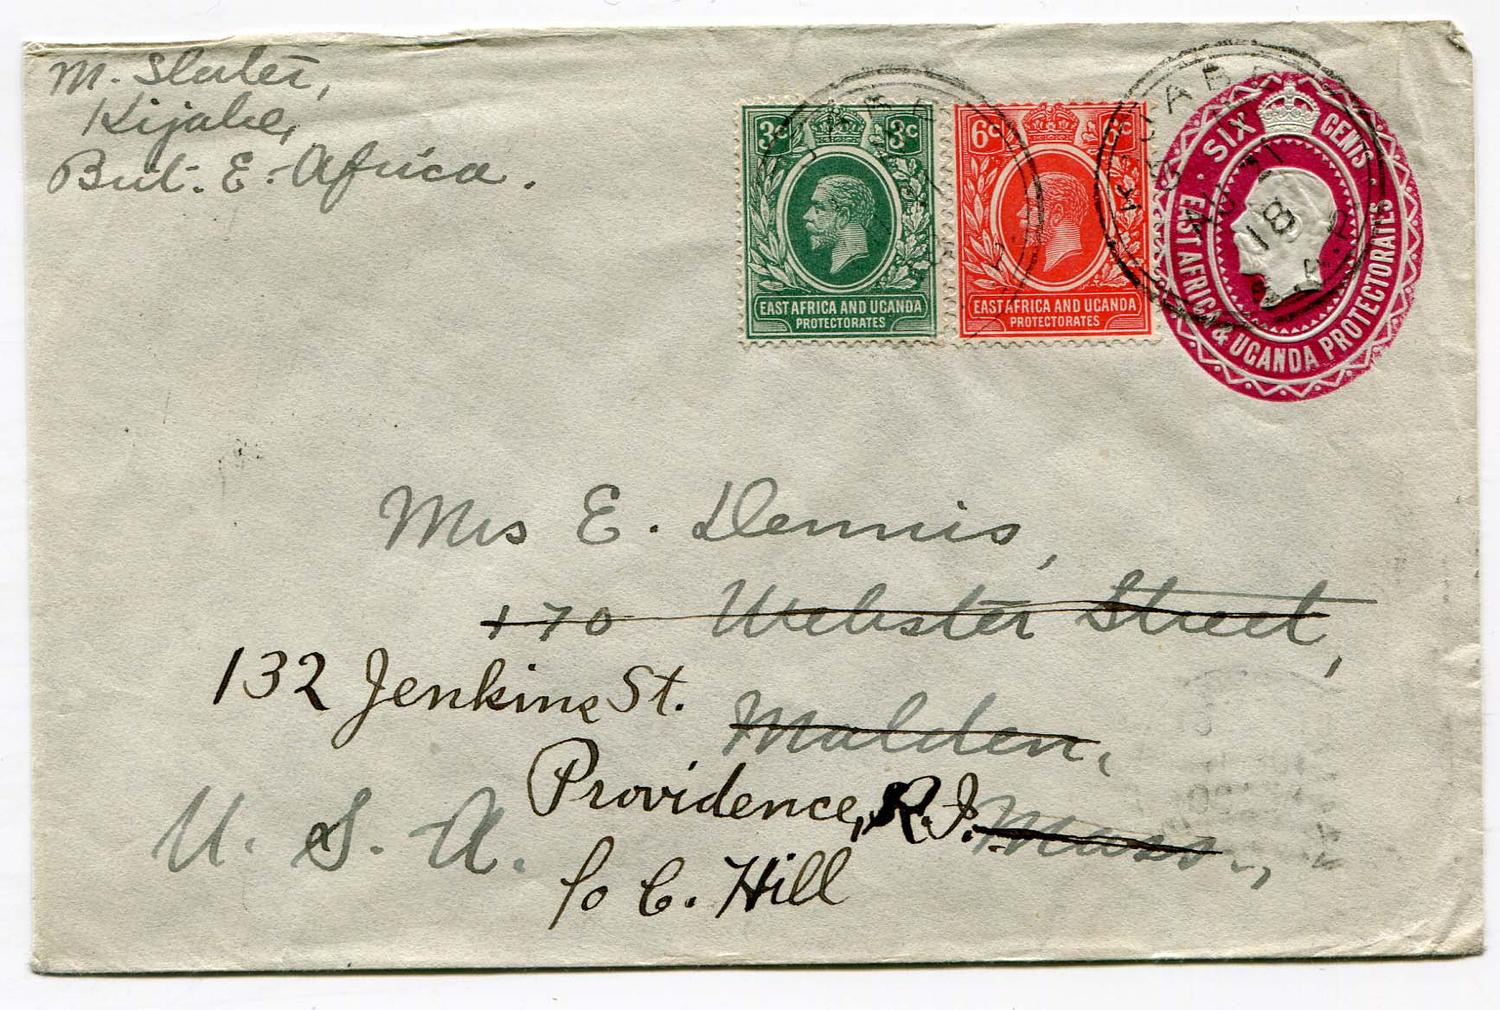 M. Slater,
Kijabe,
Brit. E. Africa.
3c 3c
EAST AFRICA AND UGANDA
PROTECTORATES
6c 6c
EAST AFRICA AND UGANDA
PROTECTORATES
SIX CENTS
EAST AFRICA & UGANDA PROTECTORATES
18
Mrs E. Dennis,
170 Webster Street,
132 Jenkins St.
Malden,
Providence, R.I.
Mass.,
U. S. A.
c/o C. Hill